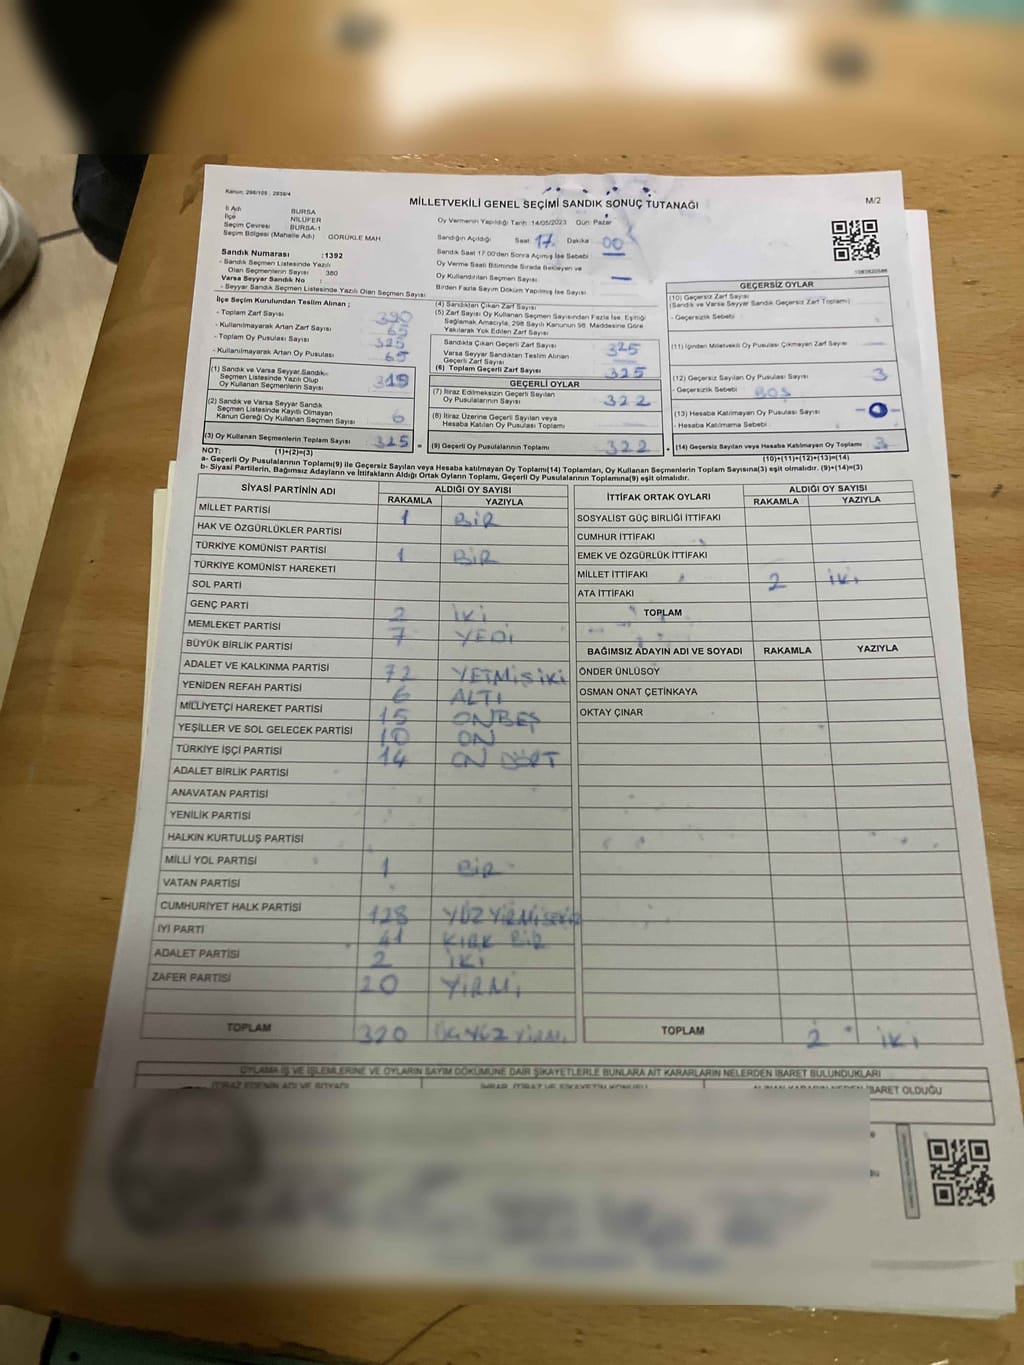 Kanun: 298/105 , 2839/4
MİLLETVEKİLİ GENEL SEÇİMİ SANDIK SONUÇ TUTANAĞI
M/2
İl Adı BURSA
İlçe NİLÜFER
Seçim Çevresi BURSA-1
Seçim Bölgesi (Mahalle Adı) GÖRÜKLE MAH
Sandık Numarası :1392
- Sandık Seçmen Listesinde Yazılı
Olan Seçmenlerin Sayısı 380
Varsa Seyyar Sandık No :
- Seyyar Sandık Seçmen Listesinde Yazılı Olan Seçmen Sayısı
Oy Vermenin Yapıldığı Tarih :14/05/2023 Gün: Pazar
Sandığın Açıldığı Saat: 17 Dakika 00
Sandık Saat 17.00'den Sonra Açılmış İse Sebebi
Oy Verme Saati Bitiminde Sırada Bekleyen ve
Oy Kullandırılan Seçmen Sayısı —
Birden Fazla Sayım Döküm Yapılmış İse Sayısı
İlçe Seçim Kurulundan Teslim Alınan ;
- Toplam Zarf Sayısı 390
- Kullanılmayarak Artan Zarf Sayısı 65
- Toplam Oy Pusulası Sayısı 325
- Kullanılmayarak Artan Oy Pusulası 65
(1) Sandık ve Varsa Seyyar Sandık
Seçmen Listesinde Yazılı Olup
Oy Kullanan Seçmenlerin Sayısı 319
(2) Sandık ve Varsa Seyyar Sandık
Seçmen Listesinde Kayıtlı Olmayan
Kanun Gereği Oy Kullanan Seçmen Sayısı 6
(3) Oy Kullanan Seçmenlerin Toplam Sayısı 325
(1)+(2)=(3)
(4) Sandıktan Çıkan Zarf Sayısı
(5) Zarf Sayısı Oy Kullanan Seçmen Sayısından Fazla İse, Eşitliği
Sağlamak Amacıyla, 298 Sayılı Kanunun 98. Maddesine Göre
Yakılarak Yok Edilen Zarf Sayısı
Sandıkta Çıkan Geçerli Zarf Sayısı 325
Varsa Seyyar Sandıktan Teslim Alınan
Geçerli Zarf Sayısı —
(6) Toplam Geçerli Zarf Sayısı 325
GEÇERLİ OYLAR
(7) İtiraz Edilmeksizin Geçerli Sayılan
Oy Pusulalarının Sayısı 322
(8) İtiraz Üzerine Geçerli Sayılan veya
Hesaba Katılan Oy Pusulaları Toplamı
= (9) Geçerli Oy Pusulalarının Toplamı 322
GEÇERSİZ OYLAR
(10) Geçersiz Zarf Sayısı
(Sandık ve Varsa Seyyar Sandık Geçersiz Zarf Toplamı)
- Geçersizlik Sebebi
(11) İçinden Milletvekili Oy Pusulası Çıkmayan Zarf Sayısı —
(12) Geçersiz Sayılan Oy Pusulası Sayısı 3
- Geçersizlik Sebebi BOŞ
(13) Hesaba Katılmayan Oy Pusulası Sayısı -0-
- Hesaba Katılmama Sebebi
+ (14) Geçersiz Sayılan veya Hesaba Katılmayan Oy Toplamı 3
(10)+(11)+(12)+(13)=(14)
NOT:
a- Geçerli Oy Pusulalarının Toplamı(9) ile Geçersiz Sayılan veya Hesaba katılmayan Oy Toplamı(14) Toplamları, Oy Kullanan Seçmenlerin Toplam Sayısına(3) eşit olmalıdır. (9)+(14)=(3)
b- Siyasi Partilerin, Bağımsız Adayların ve İttifakların Aldığı Ortak Oyların Toplamı, Geçerli Oy Pusulalarının Toplamına(9) eşit olmalıdır.
SİYASİ PARTİNİN ADI ALDIĞI OY SAYISI
RAKAMLA YAZIYLA
MİLLET PARTİSİ 1 BİR
HAK VE ÖZGÜRLÜKLER PARTİSİ
TÜRKİYE KOMÜNİST PARTİSİ 1 BİR
TÜRKİYE KOMÜNİST HAREKETİ
SOL PARTİ
GENÇ PARTİ 2 İKİ
MEMLEKET PARTİSİ 7 YEDİ
BÜYÜK BİRLİK PARTİSİ
ADALET VE KALKINMA PARTİSİ 72 YETMİŞ İKİ
YENİDEN REFAH PARTİSİ 6 ALTI
MİLLİYETÇİ HAREKET PARTİSİ 15 ONBEŞ
YEŞİLLER VE SOL GELECEK PARTİSİ 10 ON
TÜRKİYE İŞÇİ PARTİSİ 14 ON DÖRT
ADALET BİRLİK PARTİSİ
ANAVATAN PARTİSİ
YENİLİK PARTİSİ
HALKIN KURTULUŞ PARTİSİ
MİLLİ YOL PARTİSİ 1 BİR
VATAN PARTİSİ
CUMHURİYET HALK PARTİSİ 128 YÜZ YİRMİ SEKİZ
İYİ PARTİ 41 KIRK BİR
ADALET PARTİSİ 2 İKİ
ZAFER PARTİSİ 20 YİRMİ
TOPLAM 320 ÜÇ YÜZ YİRMİ
İTTİFAK ORTAK OYLARI ALDIĞI OY SAYISI
RAKAMLA YAZIYLA
SOSYALİST GÜÇ BİRLİĞİ İTTİFAKI
CUMHUR İTTİFAKI
EMEK VE ÖZGÜRLÜK İTTİFAKI
MİLLET İTTİFAKI 2 İKİ
ATA İTTİFAKI
TOPLAM
BAĞIMSIZ ADAYIN ADI VE SOYADI RAKAMLA YAZIYLA
ÖNDER ÜNLÜSOY
OSMAN ONAT ÇETİNKAYA
OKTAY ÇINAR
TOPLAM 2 İKİ
OYLAMA İŞ VE İŞLEMLERİNE VE OYLARIN SAYIM DÖKÜMÜNE DAİR ŞİKAYETLERLE BUNLARA AİT KARARLARIN NELERDEN İBARET BULUNDUKLARI
İTİRAZ EDENİN ADI VE SOYADI
İBARET OLDUĞU